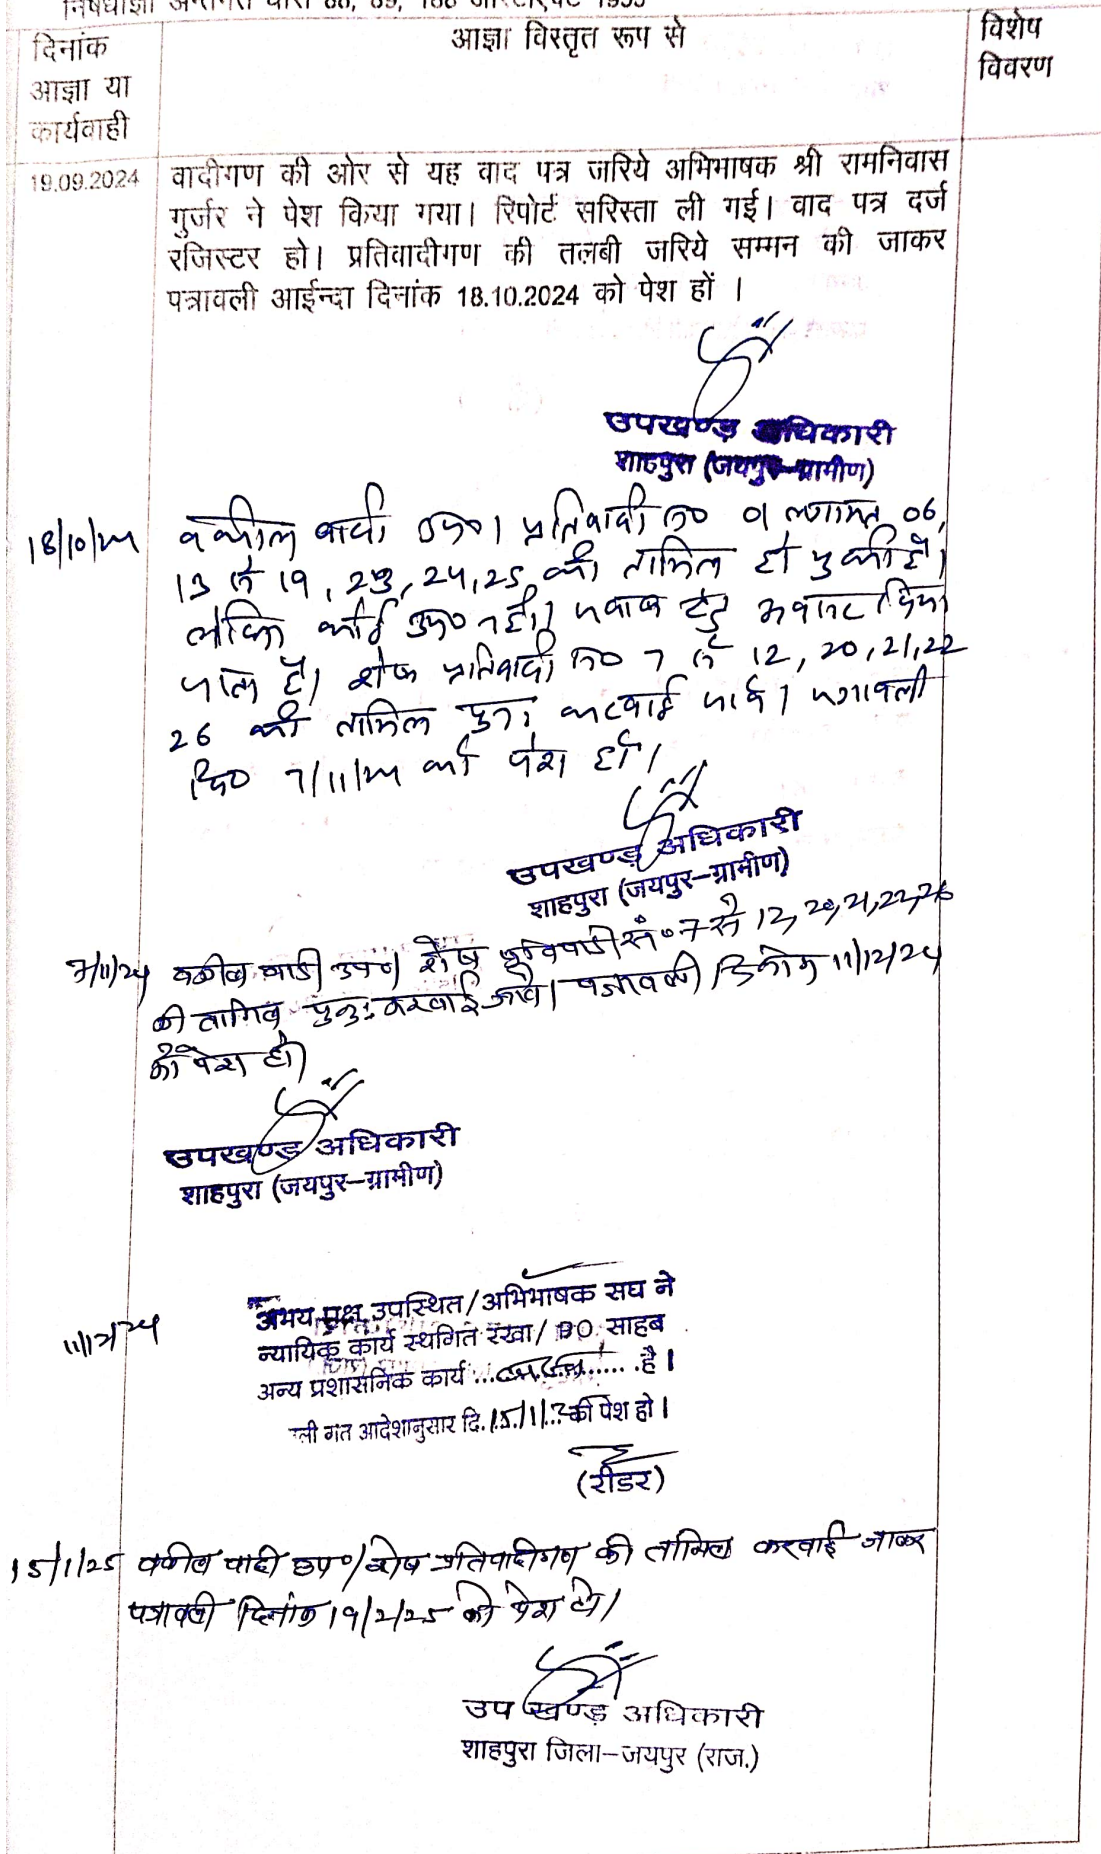 निषेधाज्ञा अन्तर्गत धारा 88, 89, 188 आर.टी.एक्ट 1955
दिनांक
आज्ञा या
कार्यवाही
आज्ञा विस्तृत रूप से
विशेष
विवरण
19.09.2024 वादीगण की ओर से यह वाद पत्र जरिये अभिभाषक श्री रामनिवास
गुर्जर ने पेश किया गया। रिपोर्ट सरिस्ता ली गई। वाद पत्र दर्ज
रजिस्टर हो। प्रतिवादीगण की तलबी जरिये सम्मन की जाकर
पत्रावली आईन्दा दिनांक 18.10.2024 को पेश हों ।
उपखण्ड अधिकारी
शाहपुरा (जयपुर–ग्रामीण)
18/10/24 वकील वादी उप०। प्रतिवादी न० 01 लगायत 06,
13 से 19, 23, 24, 25 की तामिल हो चुकी है।
लेकिन कोई उप० नहीं। जवाब हेतु अवसर दिया
जाता है। शेष प्रतिवादी न० 7 से 12, 20, 21, 22
26 की तामिल पुनः करवाई जावे। पत्रावली
दि० 7/11/24 को पेश हो।
उपखण्ड अधिकारी
शाहपुरा (जयपुर–ग्रामीण)
7/11/24 वकील वादी उप० शेष प्रतिवादी सं० 7 से 12, 20, 21, 22, 26
की तामिल पुनः करवाई जावे। पत्रावली दिनांक 11/12/24
को पेश हो।
उपखण्ड अधिकारी
शाहपुरा (जयपुर–ग्रामीण)
11/12/24 उभय पक्ष उपस्थित/अभिभाषक संघ ने
न्यायिक कार्य स्थगित रखा/ PO. साहब
अन्य प्रशासनिक कार्य ... है।
ली गत आदेशानुसार दि. 15/1/ को पेश हो।
(रीडर)
15/1/25 वकील वादी उप०/शेष प्रतिवादीगण की तामिल करवाई जाकर
पत्रावली दिनांक 19/2/25 को पेश हो।
उप खण्ड अधिकारी
शाहपुरा जिला–जयपुर (राज.)